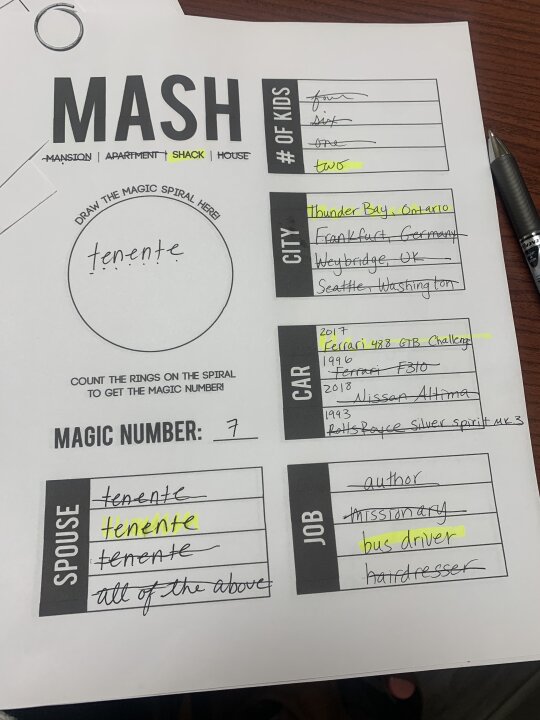 MASH
MANSION | APARTMENT | SHACK | HOUSE
DRAW THE MAGIC SPIRAL HERE!
tenente
COUNT THE RINGS ON THE SPIRAL
TO GET THE MAGIC NUMBER!
MAGIC NUMBER: 7
# OF KIDS
four
six
one
two
CITY
Thunder Bay, Ontario
Frankfurt, Germany
Weybridge, UK
Seattle, Washington
CAR
2017
Ferrari 488 GTB Challenge
1996
Ferrari F310
2018
Nissan Altima
1993
Rolls Royce Silver spirit MK 3
SPOUSE
tenente
tenente
tenente
all of the above
JOB
author
missionary
bus driver
hairdresser